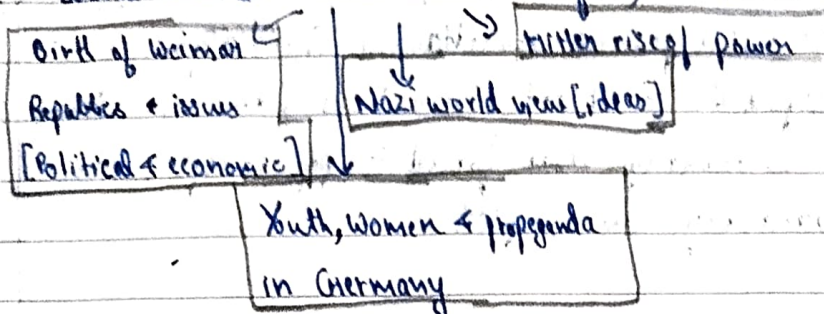 Birth of Weimar
Republics & issues
[Political & economic]
Hitler rise of power
Nazi world view [ideas]
Youth, Women & propeganda
in Germany